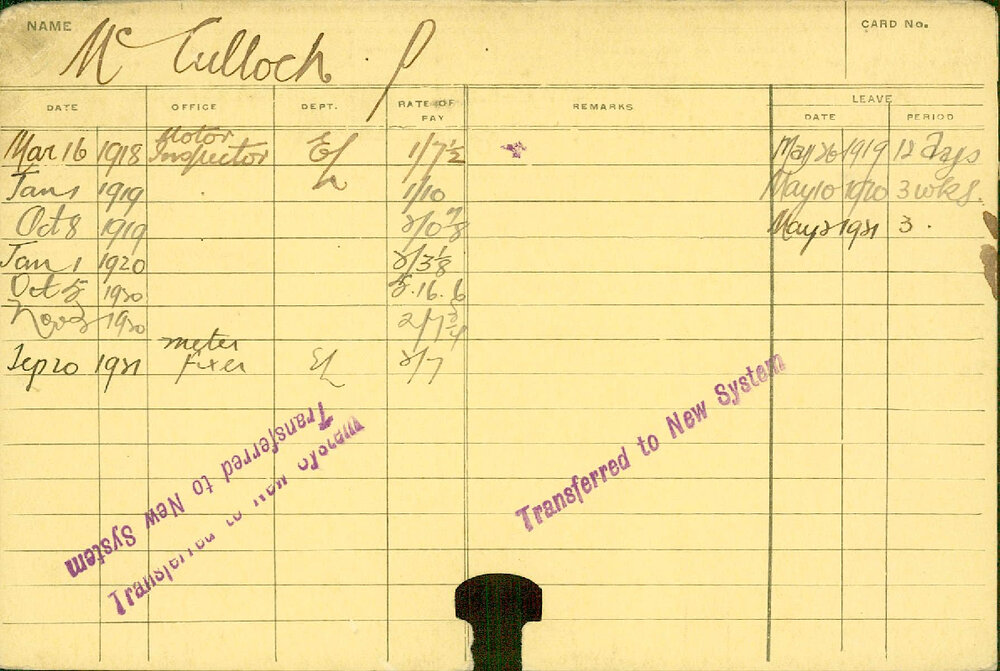 NAME Mc Culloch P CARD No.
DATE OFFICE DEPT. RATE OF PAY REMARKS LEAVE
DATE PERIOD
Mar 16 1918 Motor Inspector EL 1/7½ May 26 1919 12 Days
Jan 1 1919 1/10 May 10 1920 3 wks.
Oct 8 1919 2/0⅞ May 2 1921 3 .
Jan 1 1920 2/3⅛
Oct 5 1920 5.16.6
Nov 3 1920 2/7¾
Sep 20 1921 meter fixer EL 2/7
Transferred to New System
Transferred to New System
Transferred to New System